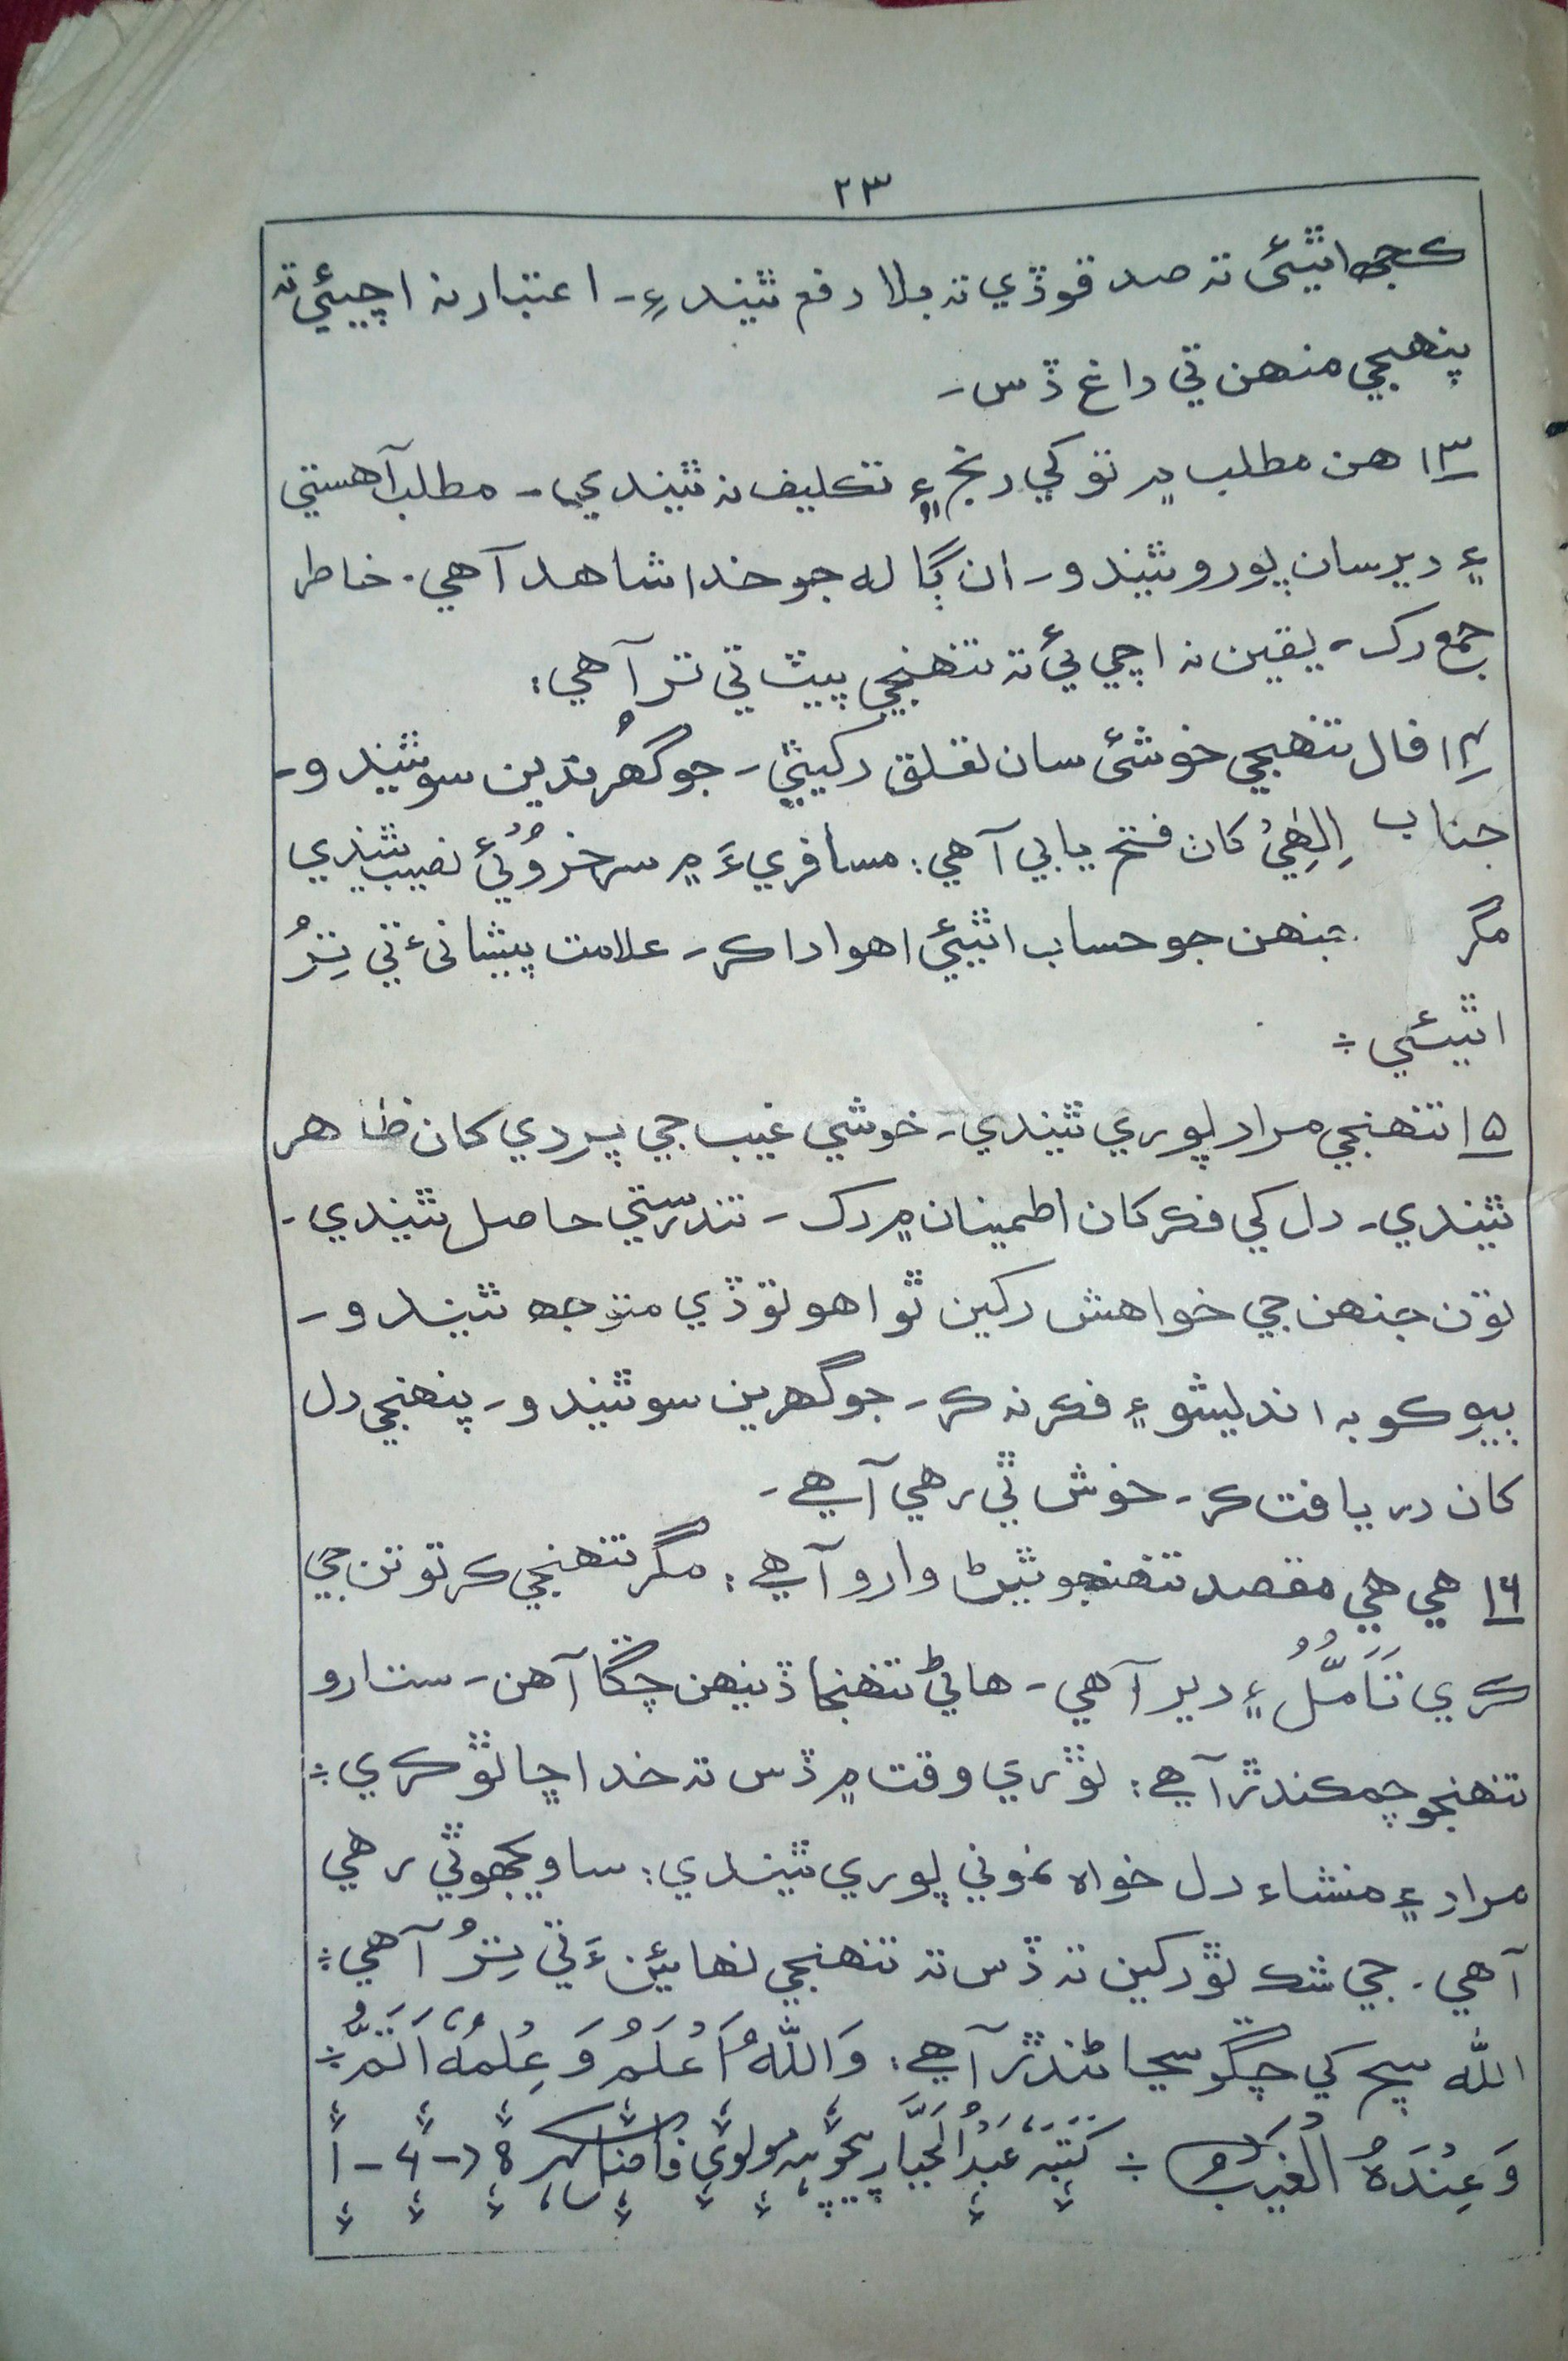 ۲۳
ڪجهه اٿيئي ته صدقو ڏي ته بلا دفع ٿيندءِ۔ اعتبار نه اچيئي ته
پنهنجي منهن تي داغ ڏس۔
۱۳ هن مطلب ۾ توکي رنج ۽ تڪليف نه ٿيندي۔ مطلب آهستي
۽ دير سان پورو ٿيندو۔ ان ڳاله جو خدا شاهد آهي۔ خاطر
جمع رک۔ يقين نه اچي ئي ته تنهنجي پيٽ تي تر آهي:
۱۴ فال تنهنجي خوشئ سان تعلق رکيٿي۔ جو گهرُندين سو ٿيندو۔
جناب اِلٰهِيْ کان فتح يابي آهي: مسافريءَ ۾ سرخروُئي نصيب ٿيندي
مگر جنهن جو حساب اٿيئي اهو ادا ڪر۔ علامت پيشانئ تي تِرُ
اٿيئي ÷
۱۵ تنهنجي مراد پوري ٿيندي۔ خوشي غيب جي پردي کان ظاهر
ٿيندي۔ دل کي فڪر کان اطمينان ۾ رک۔ تندرستي حاصل ٿيندي۔
تون جنهن جي خواهش رکين ٿو اهو تو ڏي متوجهه ٿيندو۔
ٻيو ڪو به انديشو ۽ فڪر نه ڪر۔ جو گهرين سو ٿيندو۔ پنهنجي دل
کان دريافت ڪر۔ خوش ٿي رهي آهي۔
۱۶ هي هي مقصد تنهنجو ٿيڻ وارو آهي: مگر تنهنجي ڪرتوتن جي
ڪري تَاَمُّلُ ۽ دير آهي۔ هاڻي تنهنجا ڏينهن چڱا آهن۔ ستارو
تنهنجو چمڪندڙ آهي: ٿوري وقت ۾ ڏس ته خدا ڇا ٿو ڪري÷
مراد ۽ منشاء دل خواه نموني پوري ٿيندي: سا ويجهو ٿي رهي
آهي۔ جي شڪ ٿو رکين ته ڏس ته تنهنجي نهايئن ءَ تي تِرُ آهي÷
الله سچ کي چڱو سڃاڻندڙ آهي: وَاللّٰهُ اَعْلَمُ وَعِلْمُهٗ اَتَمُّ÷
وَعِنْدَهُ الْغَيْبُ ÷ کَتَبَهٗ عَبْدُ الْجَبَّار مولوي